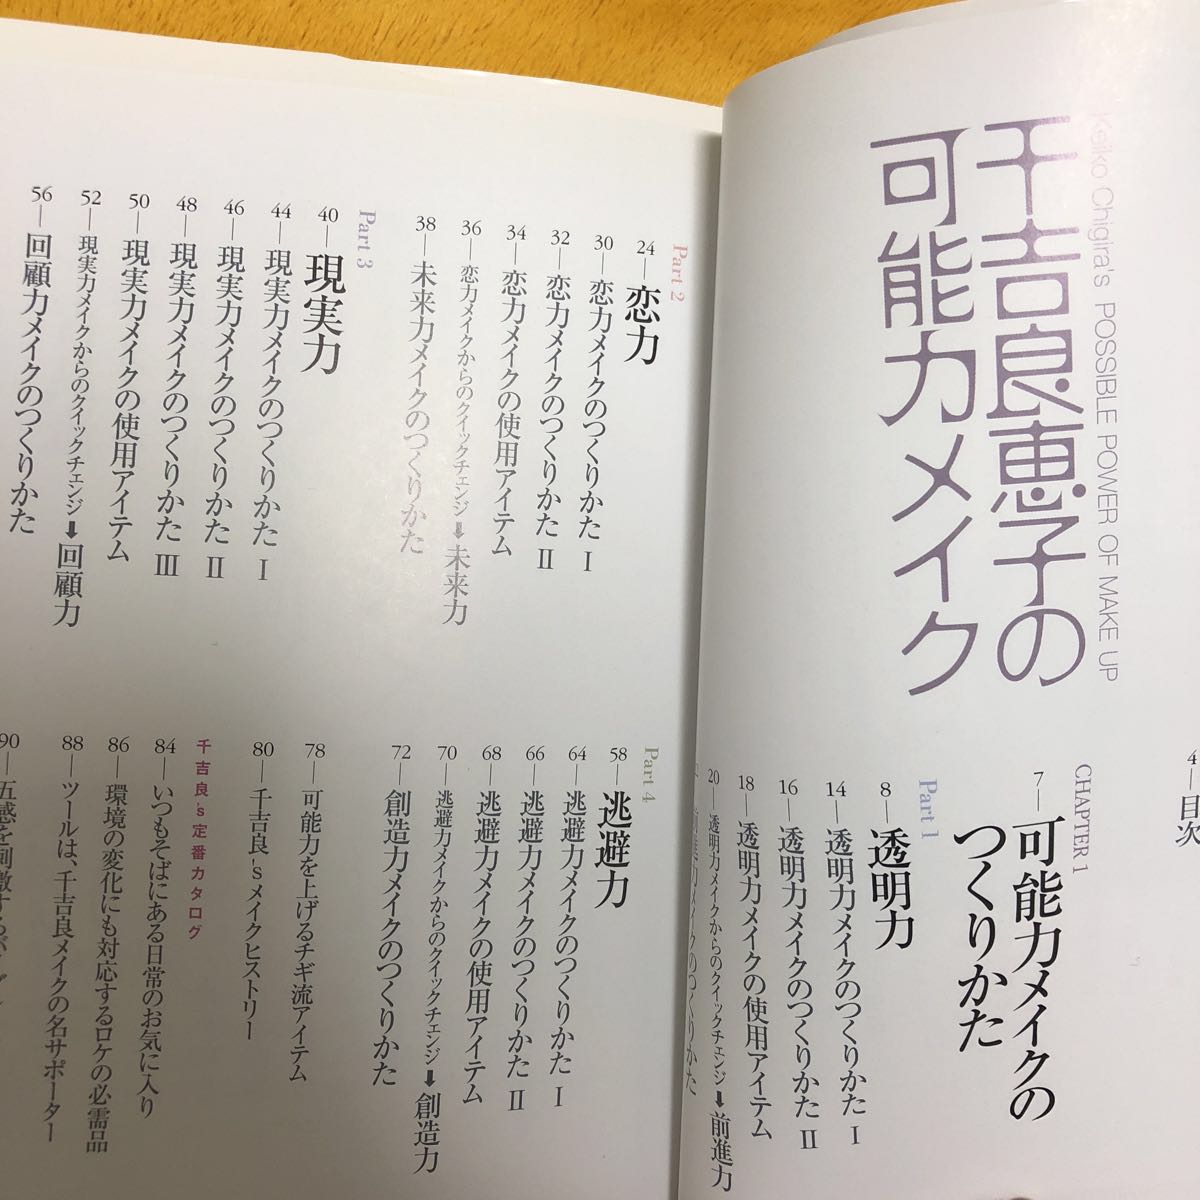 千吉良恵子の
可能力メイク
Keiko Chigira's POSSIBLE POWER OF MAKE UP
4—目次
CHAPTER 1
7—可能力メイクの
つくりかた
Part 1
8—透明力
14—透明力メイクのつくりかた Ⅰ
16—透明力メイクのつくりかた Ⅱ
18—透明力メイクの使用アイテム
20—透明力メイクからのクイックチェンジ➡前進力
前進力メイクのつくりかた
Part 2
24—恋力
30—恋力メイクのつくりかた Ⅰ
32—恋力メイクのつくりかた Ⅱ
34—恋力メイクの使用アイテム
36—恋力メイクからのクイックチェンジ➡未来力
38—未来力メイクのつくりかた
Part 3
40—現実力
44—現実力メイクのつくりかた Ⅰ
46—現実力メイクのつくりかた Ⅱ
48—現実力メイクのつくりかた Ⅲ
50—現実力メイクの使用アイテム
52—現実力メイクからのクイックチェンジ➡回顧力
56—回顧力メイクのつくりかた
Part 4
58—逃避力
64—逃避力メイクのつくりかた Ⅰ
66—逃避力メイクのつくりかた Ⅱ
68—逃避力メイクの使用アイテム
70—逃避力メイクからのクイックチェンジ➡創造力
72—創造力メイクのつくりかた
78—可能力を上げるチギ流アイテム
80—千吉良's メイクヒストリー
千吉良's定番カタログ
84—いつもそばにある日常のお気に入り
86—環境の変化にも対応するロケの必需品
88—ツールは、千吉良メイクの名サポーター
90—五感を刺激する